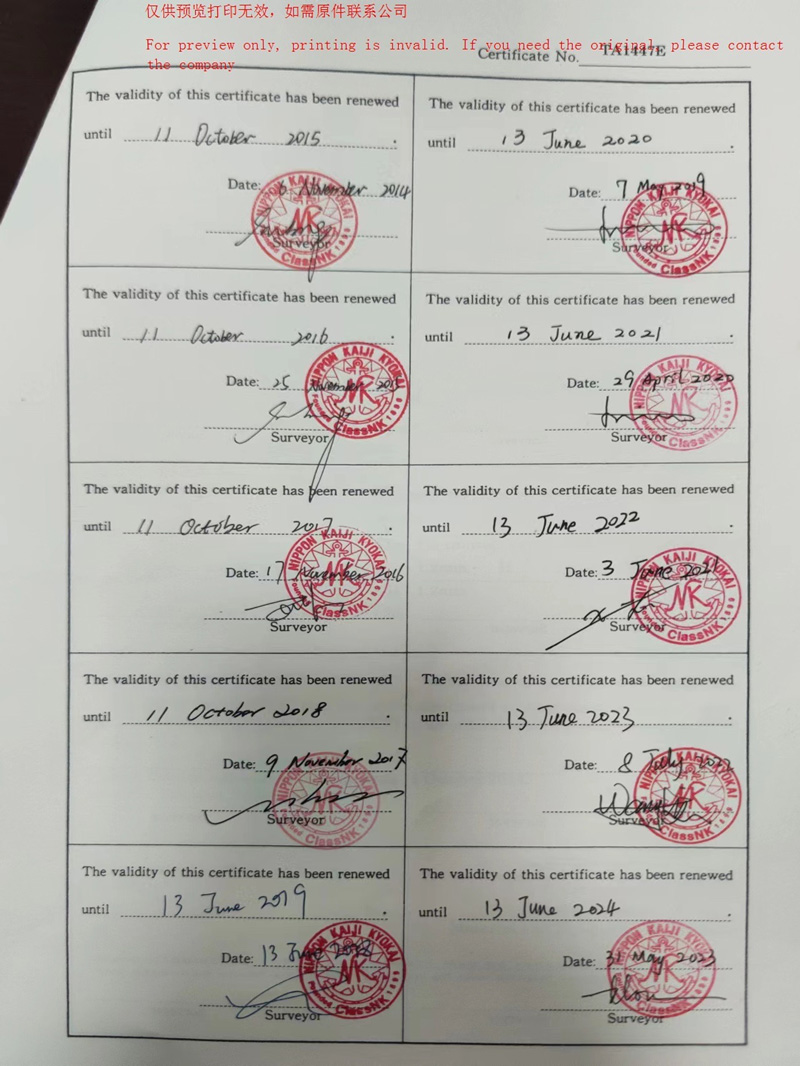 仅供预览打印无效，如需原件联系公司
For preview only, printing is invalid. If you need the original, please contact
the company
Certificate No. TA1447E
The validity of this certificate has been renewed
until 11 October 2015 .
Date: 6 November 2014
Surveyor
NIPPON KAIJI KYOKAI
NK
Founded ClassNK 1899
The validity of this certificate has been renewed
until 11 October 2016 .
Date: 25 November 2015
Surveyor
NIPPON KAIJI KYOKAI
NK
Founded ClassNK 1899
The validity of this certificate has been renewed
until 11 October 2017 .
Date: 17 November 2016
Surveyor
NIPPON KAIJI KYOKAI
NK
ClassNK 1899
The validity of this certificate has been renewed
until 11 October 2018 .
Date: 9 November 2017
Surveyor
NIPPON KAIJI KYOKAI
NK
Founded ClassNK 1899
The validity of this certificate has been renewed
until 13 June 2019 .
Date: 13 June 2018
Surveyor
NIPPON KAIJI KYOKAI
NK
Founded ClassNK 1899
The validity of this certificate has been renewed
until 13 June 2020 .
Date: 7 May 2019
Surveyor
NIPPON KAIJI KYOKAI
NK
Founded ClassNK 1899
The validity of this certificate has been renewed
until 13 June 2021 .
Date: 29 April 2020
Surveyor
NIPPON KAIJI KYOKAI
NK
ClassNK 1899
The validity of this certificate has been renewed
until 13 June 2022 .
Date: 3 June 2021
Surveyor
KAIJI KYOKAI
NK
ClassNK 1899
The validity of this certificate has been renewed
until 13 June 2023 .
Date: 8 July 2022
Surveyor
NIPPON KAIJI KYOKAI
NK
ClassNK 1899
The validity of this certificate has been renewed
until 13 June 2024 .
Date: 31 May 2023
Surveyor
NIPPON KAIJI KYOKAI
NK
Founded ClassNK 1899